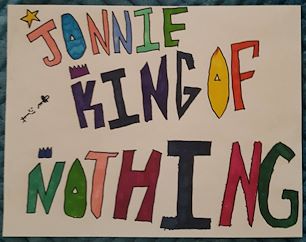 JONNIE
KING OF
NOTHING